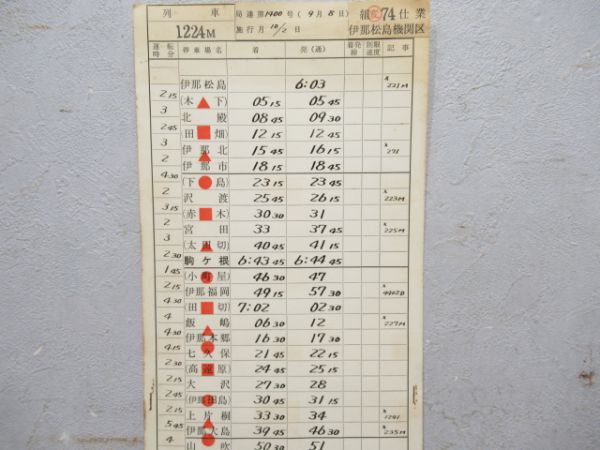 列車 局達第1400号(9月8日) 組変74仕業
1224M 施行月10/2日 伊那松島機関区
運転時分 停車場名 着 発(通) 着発線 制限速度 記事
伊那松島 6:03 × 221M
2 15
(木下) 05 15 05 45
3
北殿 08 45 09 30
2 45
(田畑) 12 15 12 45
3
伊那北 15 45 16 15 × 271
2
伊那市 18 15 18 45
4 30
(下島) 23 15 23 45
2
沢渡 25 45 26 15 × 223M
3 15
(赤木) 30 30 31
2
宮田 33 37 45 × 225M
3
(太田切) 40 45 41 15
2 30
駒ヶ根 6:43 45 6:44 45
1 45
(小町屋) 46 30 47
2 15
伊那福岡 49 15 57 30 × 4402D
4 30
(田切) 7:02 02 30
4
飯嶋 06 30 12 × 227M
4 30
伊那本郷 16 30 17 30
4 15
七久保 21 45 22 15
2 30
(高遠原) 24 45 25 15
2 15
大沢 27 30 28
2 45
(伊那田島) 30 45 31 15
2 15
上片桐 33 30 34 × 1291
5 45
伊那大島 39 45 46 30 × 235M
4
山吹 50 30 51